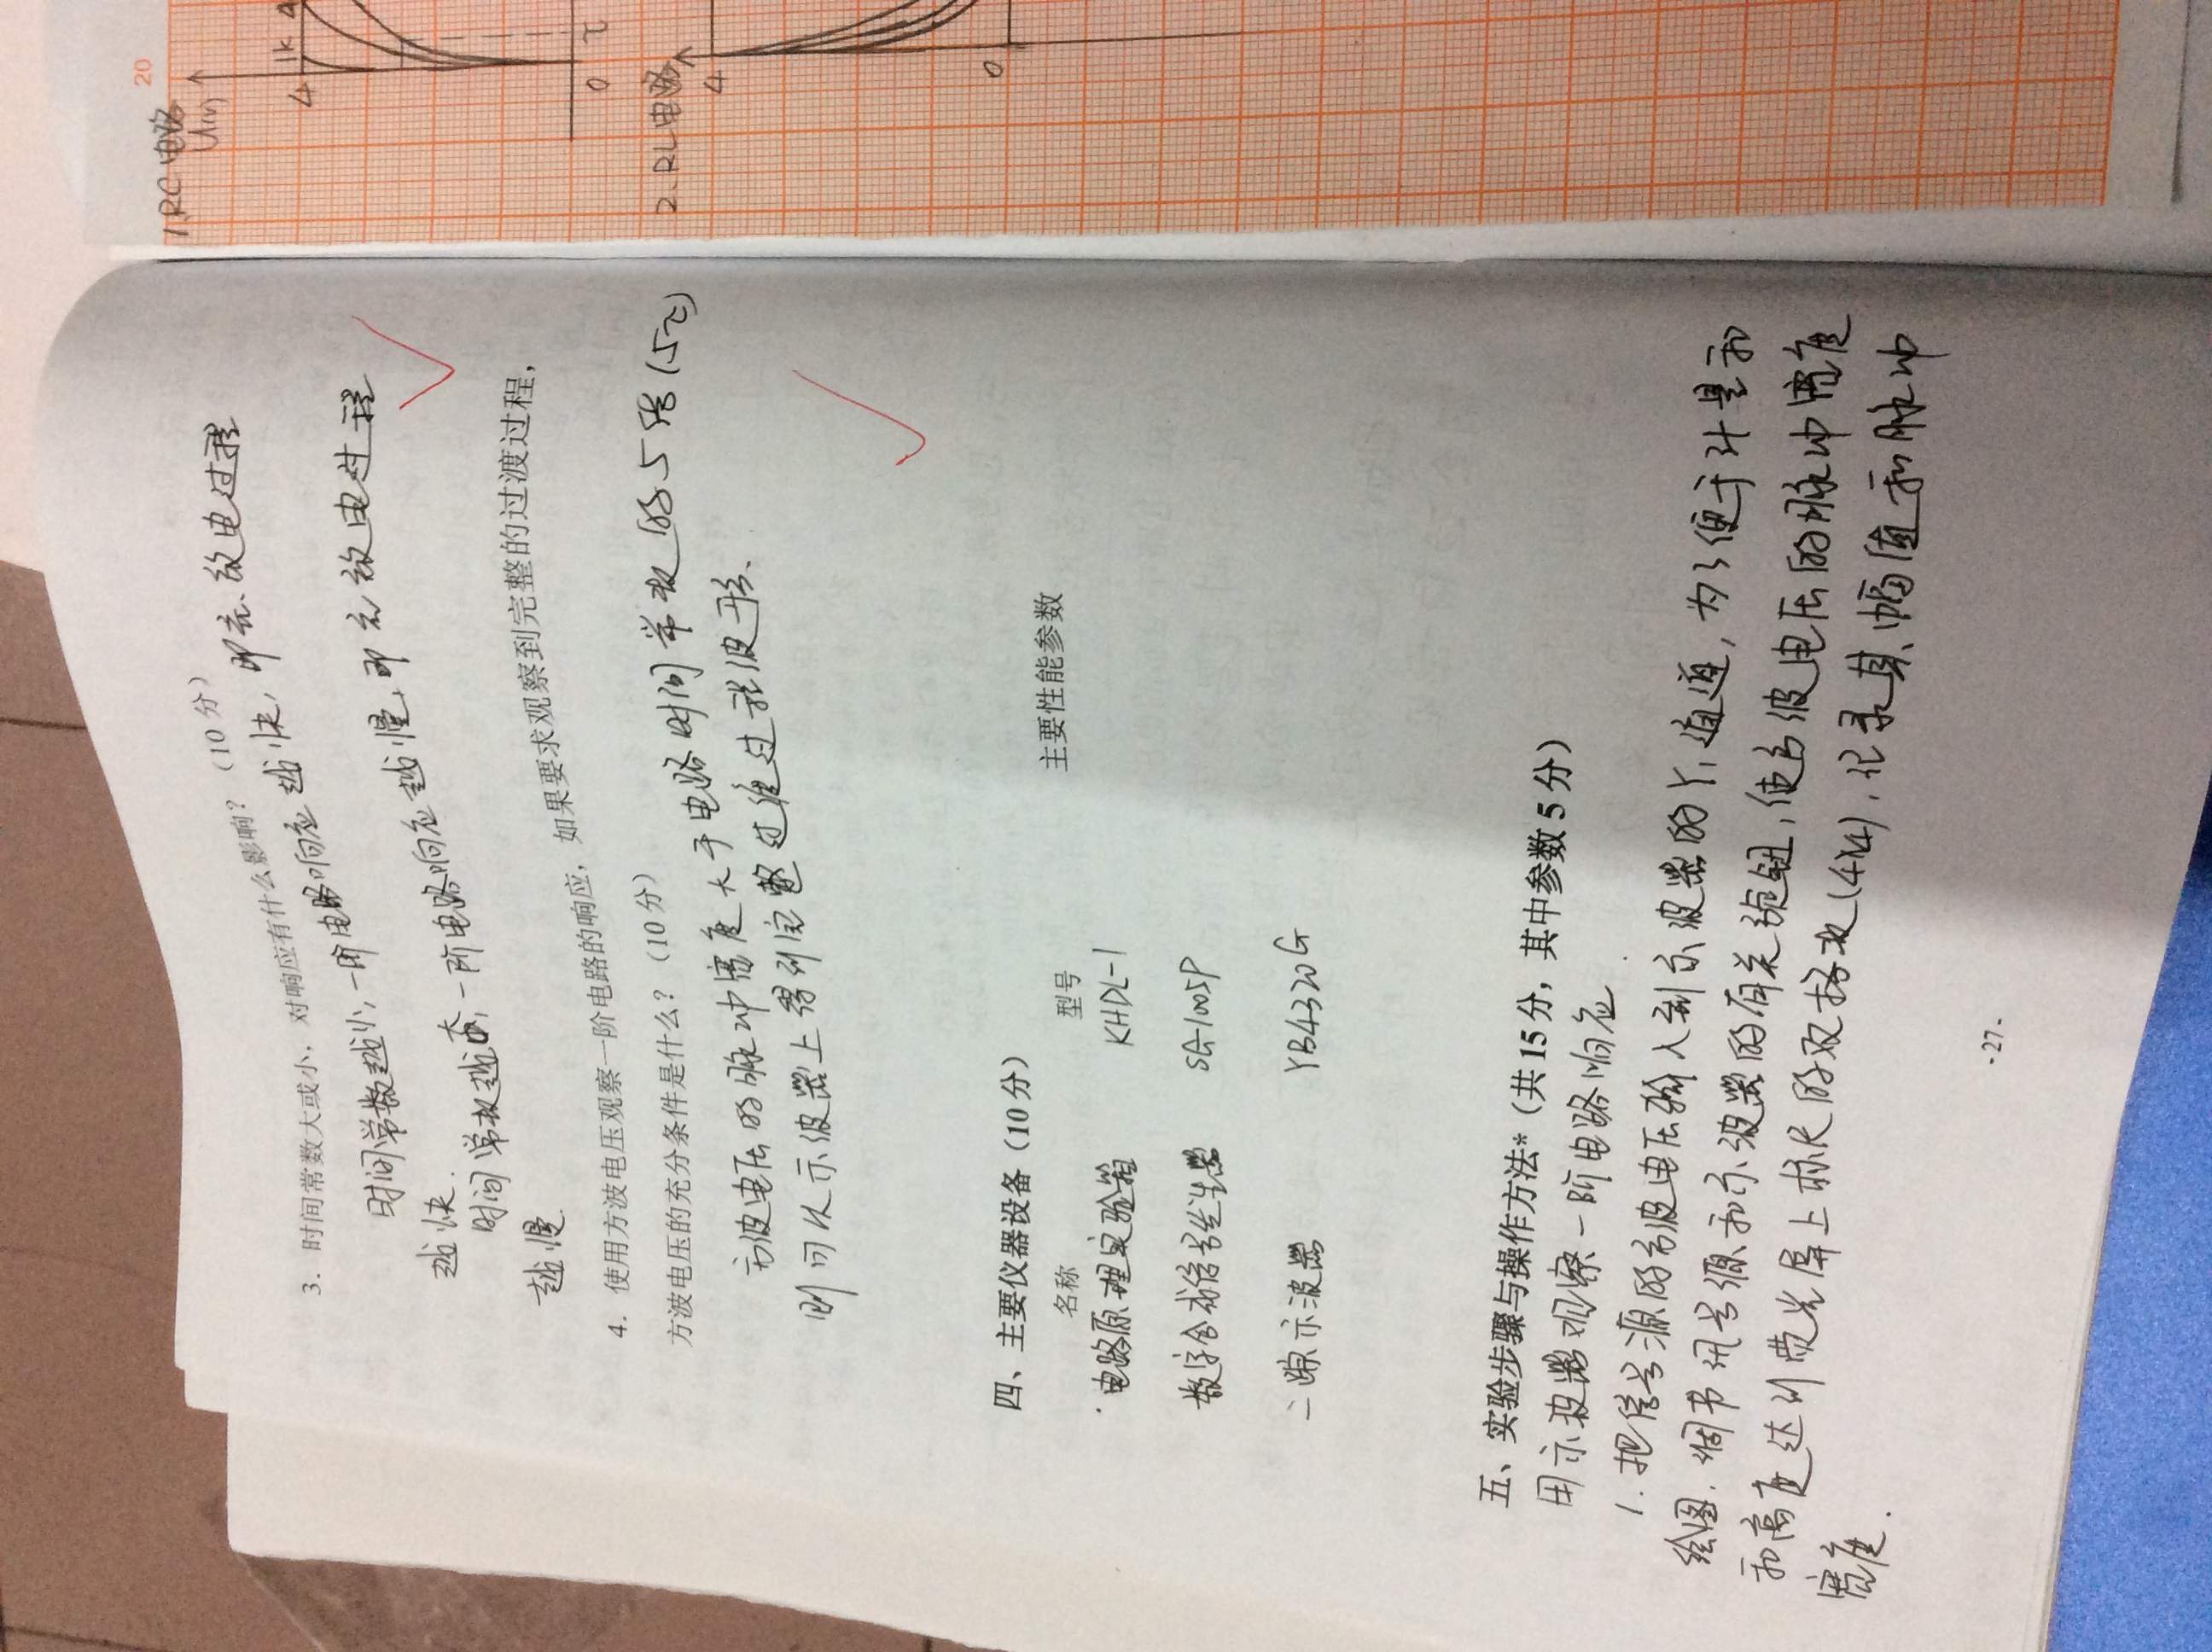 3. 时间常数大或小，对响应有什么影响？（10 分）
时间常数越小，一阶电路响应越快，即充、放电过程
越快.
时间常数越大，一阶电路响应越慢，即充放电过程
越慢.
4. 使用方波电压观察一阶电路的响应，如果要求观察到完整的过渡过程，
方波电压的充分条件是什么？（10 分）
方波电压的脉冲宽度大于电路时间常数的5倍(5τ)
则可以示波器上得到完整过渡过程波形、
四、主要仪器设备（10 分）
名称 型号 主要性能参数
电路原理实验箱 KHDL-1
数字合成信号发生器 SG1005P
二踪示波器 YB4320G
五、实验步骤与操作方法*（共 15 分，其中参数 5 分）
用示波器观察一阶电路响应
1. 把信号源的方波电压输入到示波器的Y1通道，为了便于计量和
绘图．调节讯号源和示波器的有关旋钮，使方波电压的脉冲宽度
和高度达到荧光屏上标尺的双格数(4×4)，记录其幅值和脉冲
宽度．
-27-
20
1、RC电路
U(V)
4 1k
0 τ
2、RL电路
4
0